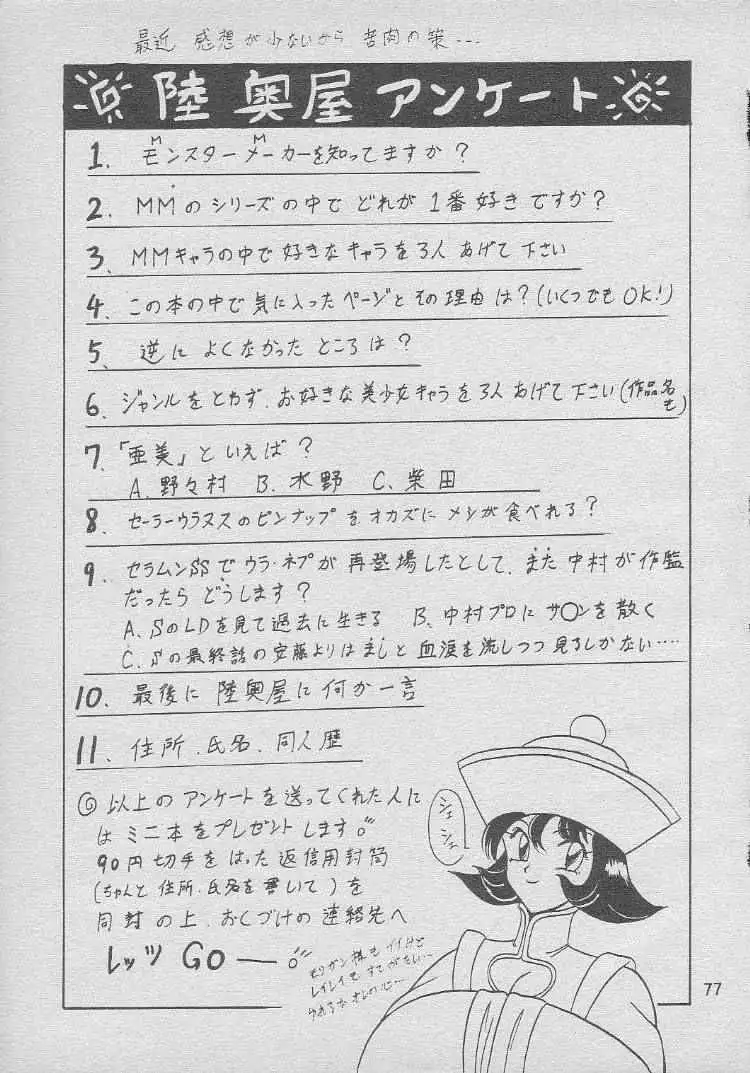 最近 感想が少ないから 苦肉の策…
陸奥屋 アンケート
M M
1. モンスターメーカーを知ってますか?
2. MMのシリーズの中で どれが 1番好きですか?
3. MMキャラの中で 好きなキャラを3人 あげて下さい
4. この本の中で気に入ったページとその理由は?(いくつでもOK!)
5. 逆に よくなかった ところは?
6. ジャンルをとわず、お好きな美少女キャラを3人あげて下さい(作品名も)
7. 「亜美」といえば?
A. 野々村 B. 水野 C. 柴田
8. セーラーウラヌスのピンナップをオカズに メシが食べれる?
9. セラムンSSで ウラ・ネプが 再登場したとして、また中村が作監
だったら どうします?
A. SのLDを見て過去に生きる B. 中村プロに サ○ンを散く
C. Sの最終話の安藤よりはましと 血涙を流しつつ見るしかない……
10. 最後に 陸奥屋に 何か一言
11. 住所、氏名、同人歴
◎以上のアンケートを送ってくれた人に
はミニ本をプレゼントします
90円切手をはった返信用封筒
(ちゃんと 住所、氏名を書いて)を
同封の上、おくづけの連絡先へ
レッツ GO ―
シェ
シェ
モリガン様も イイけど
レイレイも すてがたい…
ゆれるオレの心…
77